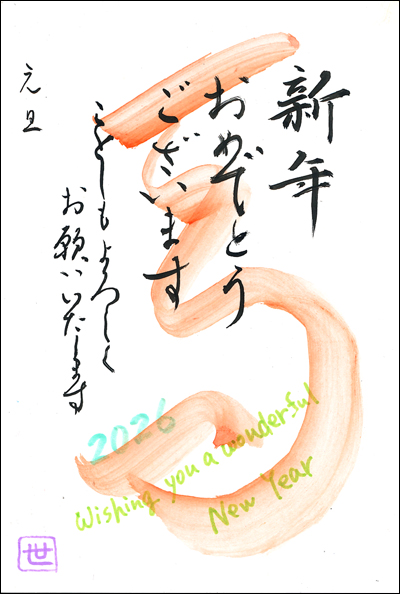 新年
おめでとう
ございます
ことしもよろしく
お願いいたします
元旦
2026
Wishing you a wonderful
New Year
世